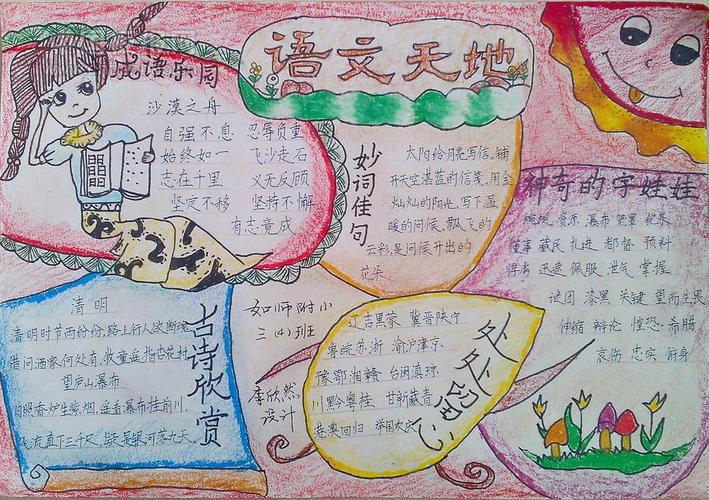 语文天地
成语乐园
沙漠之舟
自强不息 忍辱负重
始终如一 飞沙走石
志在千里 义无反顾
坚定不移 坚持不懈
有志竟成
妙词佳句
太阳给月亮写信。铺
开天空湛蓝的信笺,用金
灿灿的阳光,写下温
暖的问候。飘飞的
云彩,是问候开出的
花朵
神奇的字娃娃
瀑布 笼罩
董事 藏民 扎进 都督 预料
得者 迅速 佩服 泄气 掌握
谜团 漆黑 关键 望而生畏
伸缩 辩论 惶恐 希腊
哀伤 忠实 俯身
古诗欣赏
清明
清明时节雨纷纷,路上行人欲断魂
借问酒家何处有,牧童遥指杏花村
望庐山瀑布
日照香炉生紫烟,遥看瀑布挂前川,
飞流直下三千尺,疑是银河落九天。
如师附小
三(4)班
李欣然
设计
处处留心
辽吉黑蒙 冀晋陕宁
粤皖苏浙 渝沪津京
豫鄂湘赣 台闽滇琼
川黔粤桂 甘新藏青
港澳回归 举国欢庆